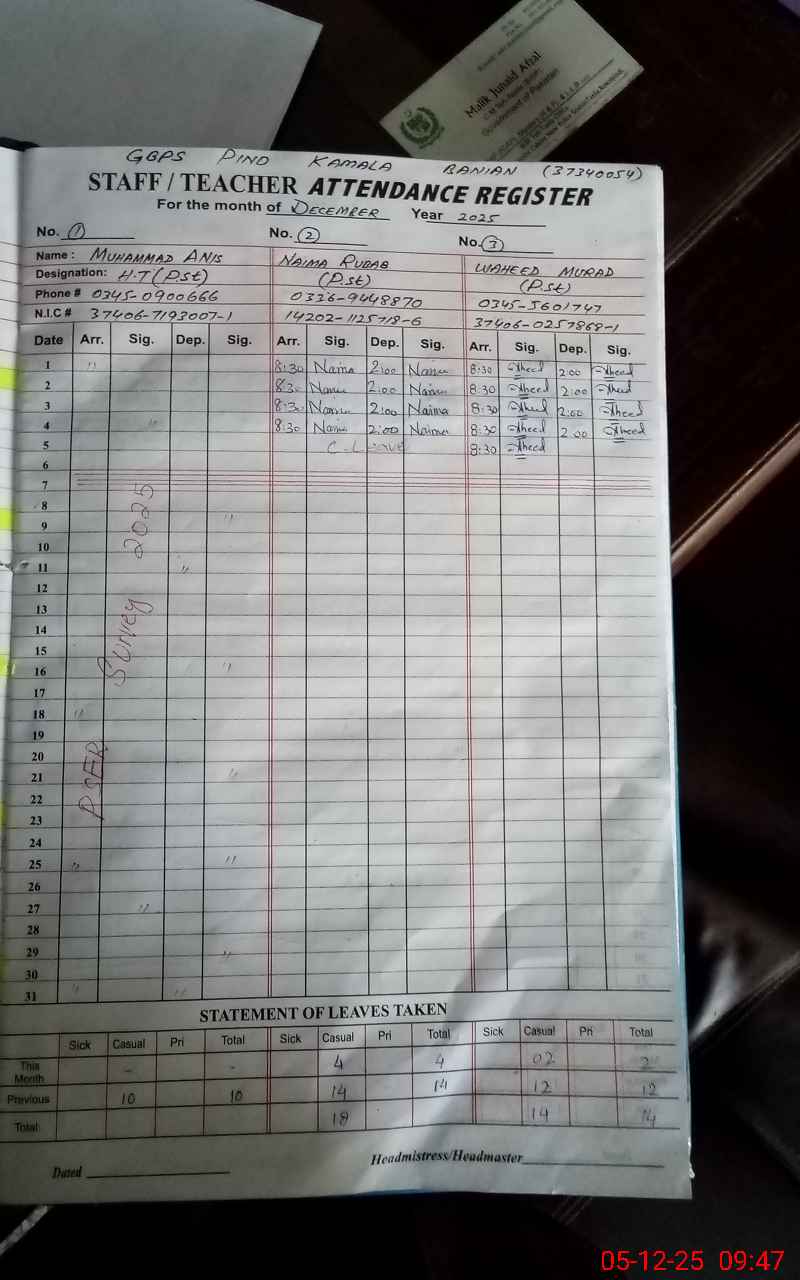 Malik Junaid Afzal
Government of Pakistan
GBPS PIND KAMALA BANIAN (37340054)
STAFF / TEACHER ATTENDANCE REGISTER
For the month of DECEMBER Year 2025
No. 1 No. 2 No. 3
Name : MUHAMMAD ANIS NAIMA RUBAB WAHEED MURAD
Designation: H.T (P.st) (P.st) (P.st)
Phone # 0345-0900666 0336-9448870 0345-5601747
N.I.C # 37406-7193007-1 14202-1125718-6 37406-0257868-1
Date Arr. Sig. Dep. Sig. Arr. Sig. Dep. Sig. Arr. Sig. Dep. Sig.
1 " 8:30 Naima 2:00 Naima 8:30 2:00
2 8:30 Naima 2:00 Naima 8:30 2:00
3 8:30 Naima 2:00 Naima 8:30 2:00
4 " 8:30 Naima 2:00 Naima 8:30 2:00
5 C. Leave 8:30
6
7
8
9 "
10
11 "
12
13
14
15
16 "
17
18 "
19
20
21 "
22
23
24
25 " "
26
27 "
28
29 "
30
31 " "
PSER Survey 2025
STATEMENT OF LEAVES TAKEN
Sick Casual Pri Total Sick Casual Pri Total Sick Casual Pri Total
This Month - - 4 4 02 2
Previous 10 10 14 14 12 12
Total 18 14 14
Dated Headmistress/Headmaster
05-12-25 09:47